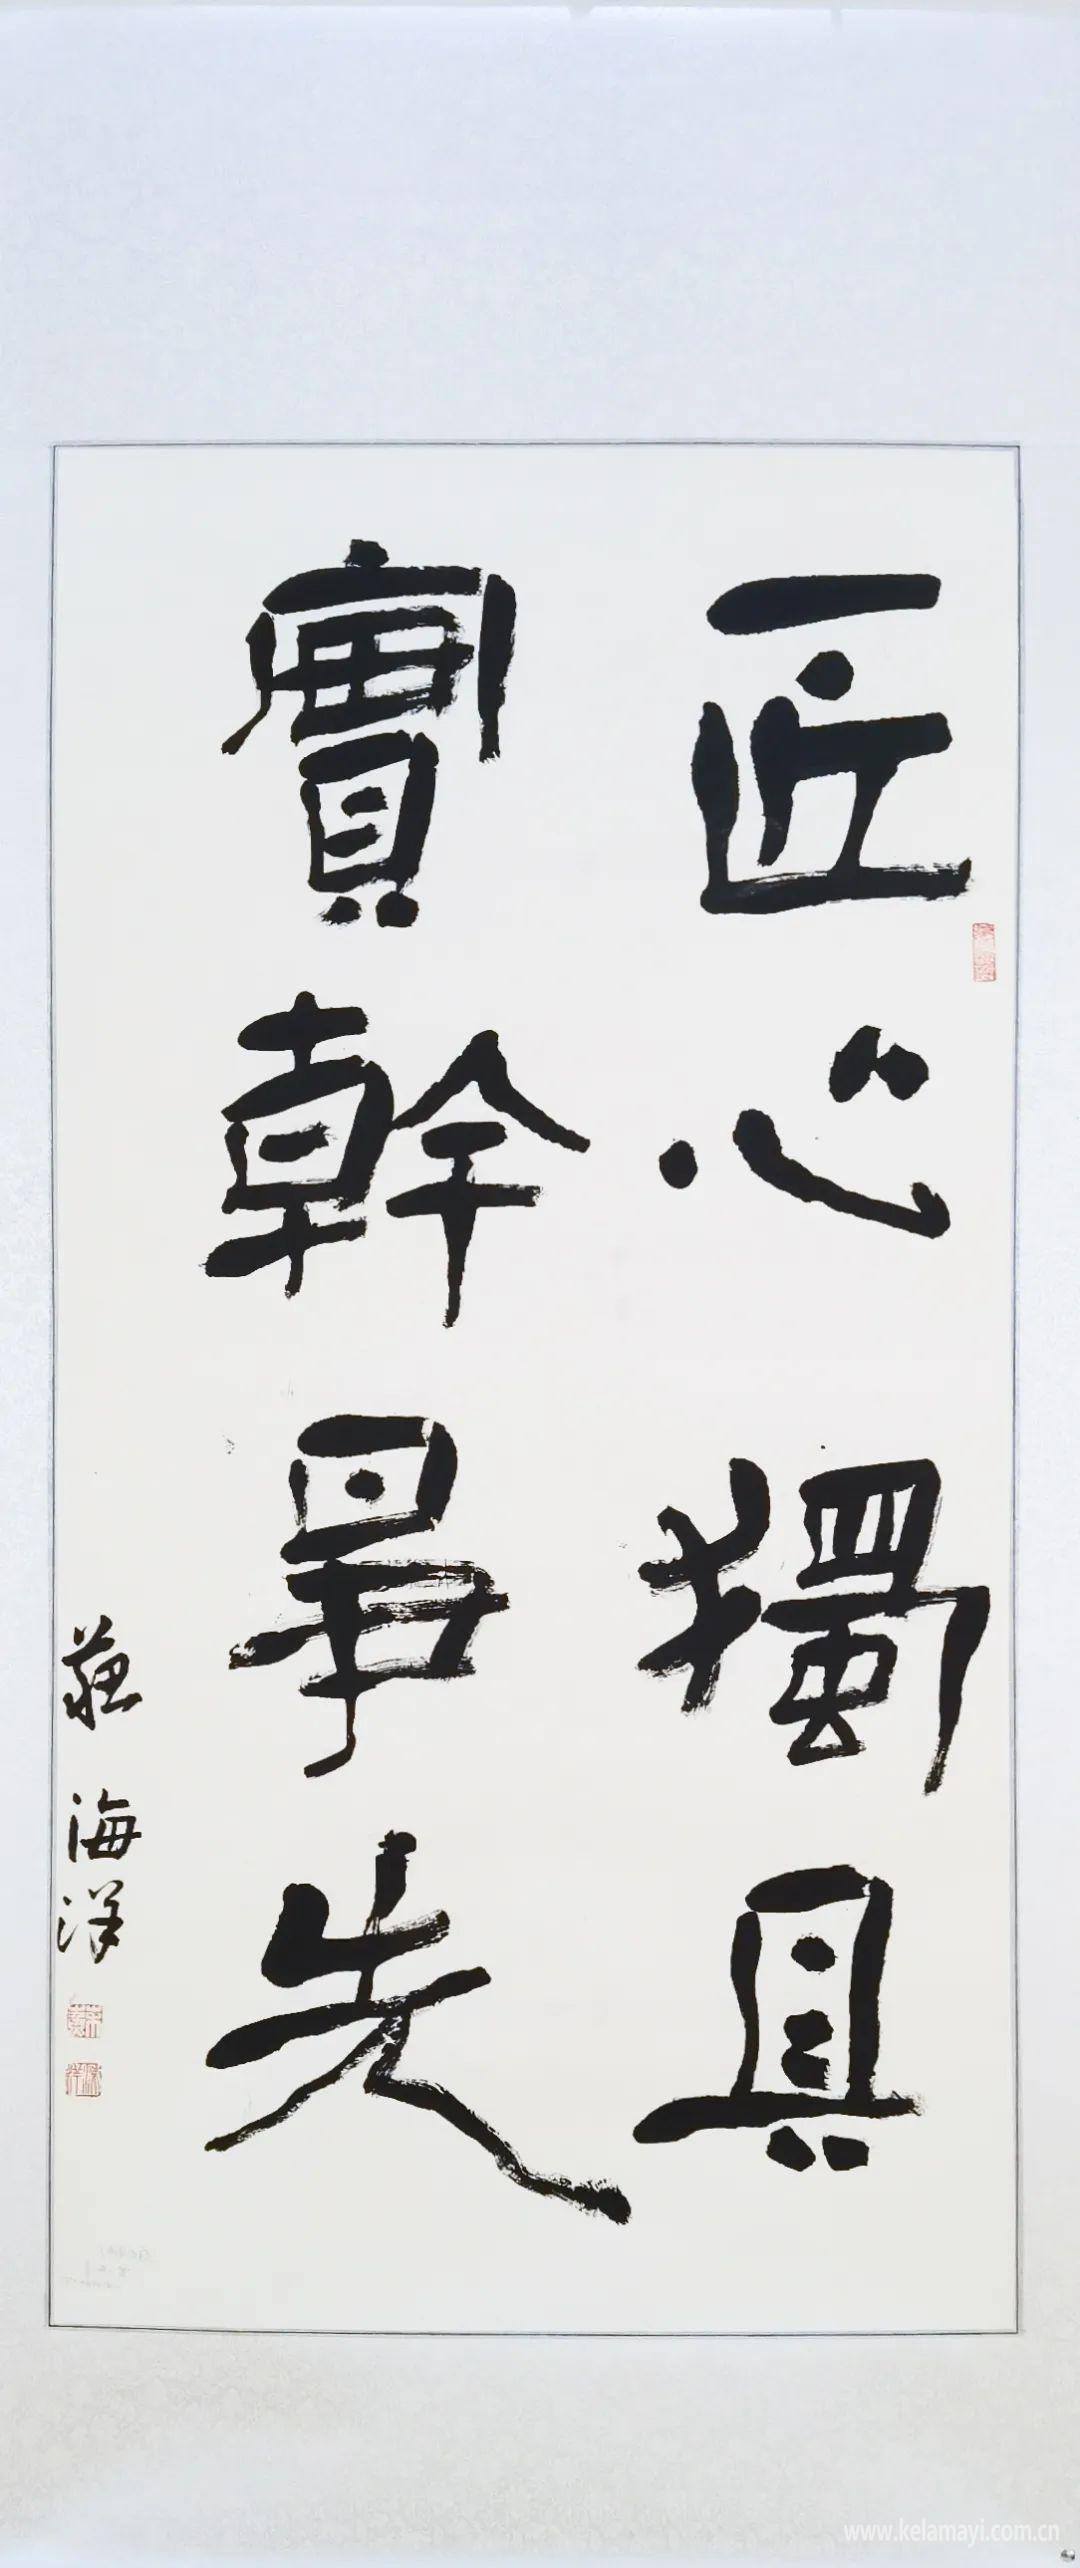 匠心獨具
實幹爭先
蘇海洋
www.kelamayi.com.cn